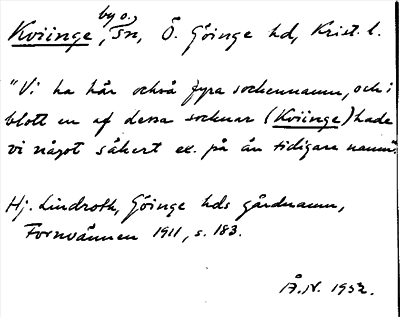 by o.
Kviinge, sn, Ö. Göinge hd, Krist. l.
"Vi ha här också fyra sockennamn, och i
blott en af dessa socknar (Kviinge) hade
vi något säkert ex. på än tidigare namn
Hj. Lindroth, Göinge hds gårdnamn,
Fornvännen 1911, s. 183.
Å.N. 1952.